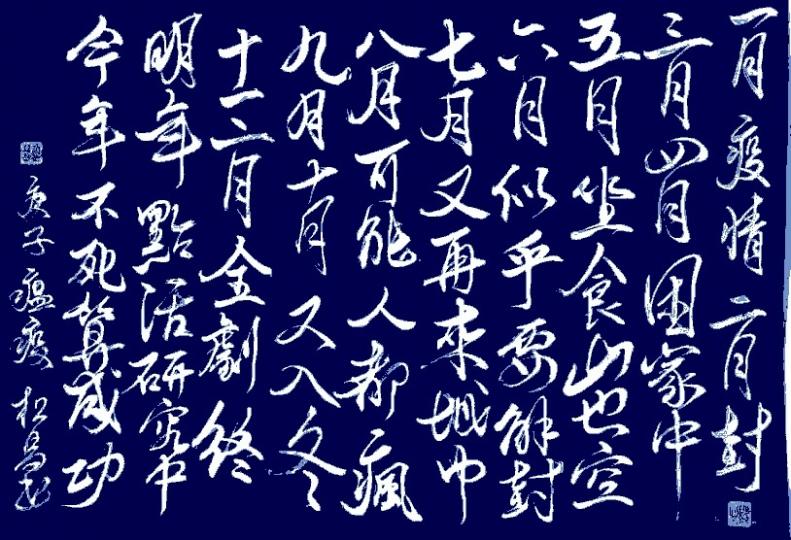 一月疫情二月封
三月四月困家中
五月坐食山也空
六月似乎要解封
七月又再來城中
八月可能人都瘋
九月十月又入冬
十一二月全劇終
明年點活研究中
今年不死算成功
庚子瘟疫